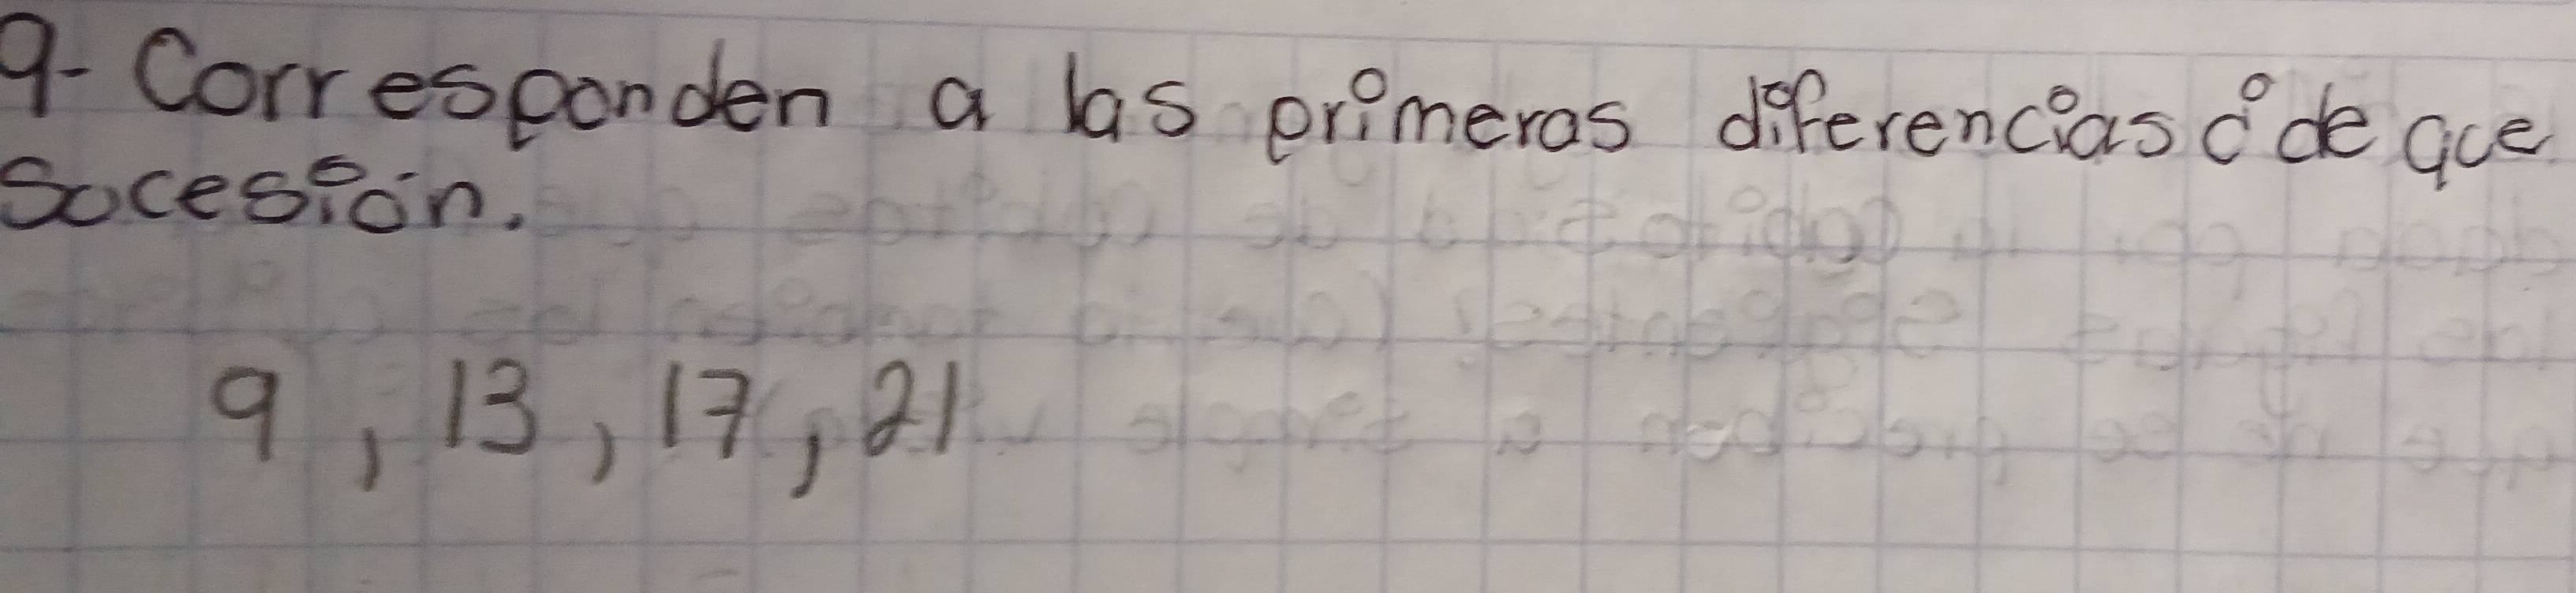 9- Corresponden a las primeras diferencias ¿ de que
sucesión.
9, 13, 17, 21